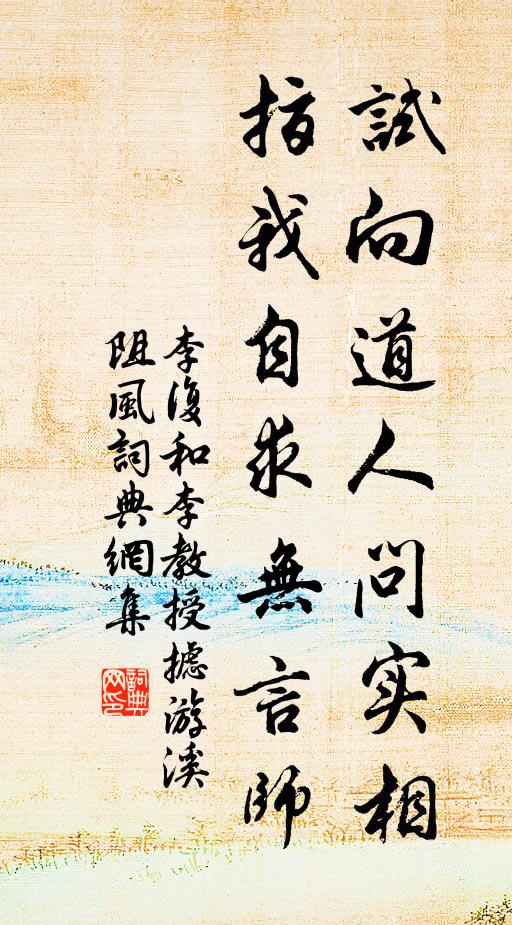 試向道人問实相
指我自求無言師
李復和李教授攄游溪
阻風詞典網集
詞典
网印